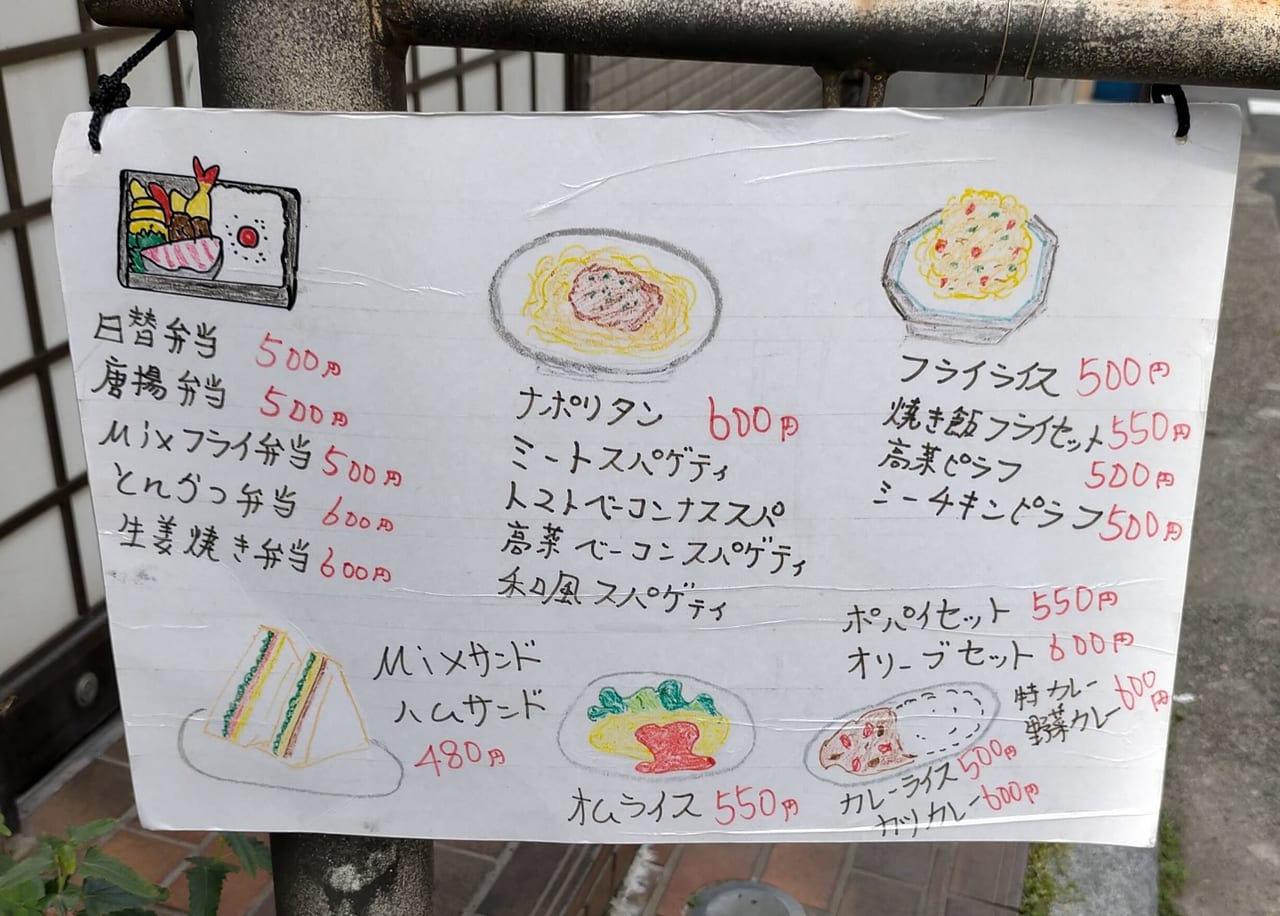 日替弁当 500円
唐揚弁当 500円
Mixフライ弁当 500円
とんかつ弁当 600円
生姜焼き弁当 600円
ナポリタン 600円
ミートスパゲティ
トマトベーコンナススパ
高菜ベーコンスパゲティ
和風スパゲティ
フライライス 500円
焼き飯フライセット 550円
高菜ピラフ 500円
ミーチキンピラフ 500円
ポパイセット 550円
オリーブセット 600円
特カレー
野菜カレー 600円
Mixサンド
ハムサンド
480円
オムライス 550円
カレーライス 500円
カツカレー 600円